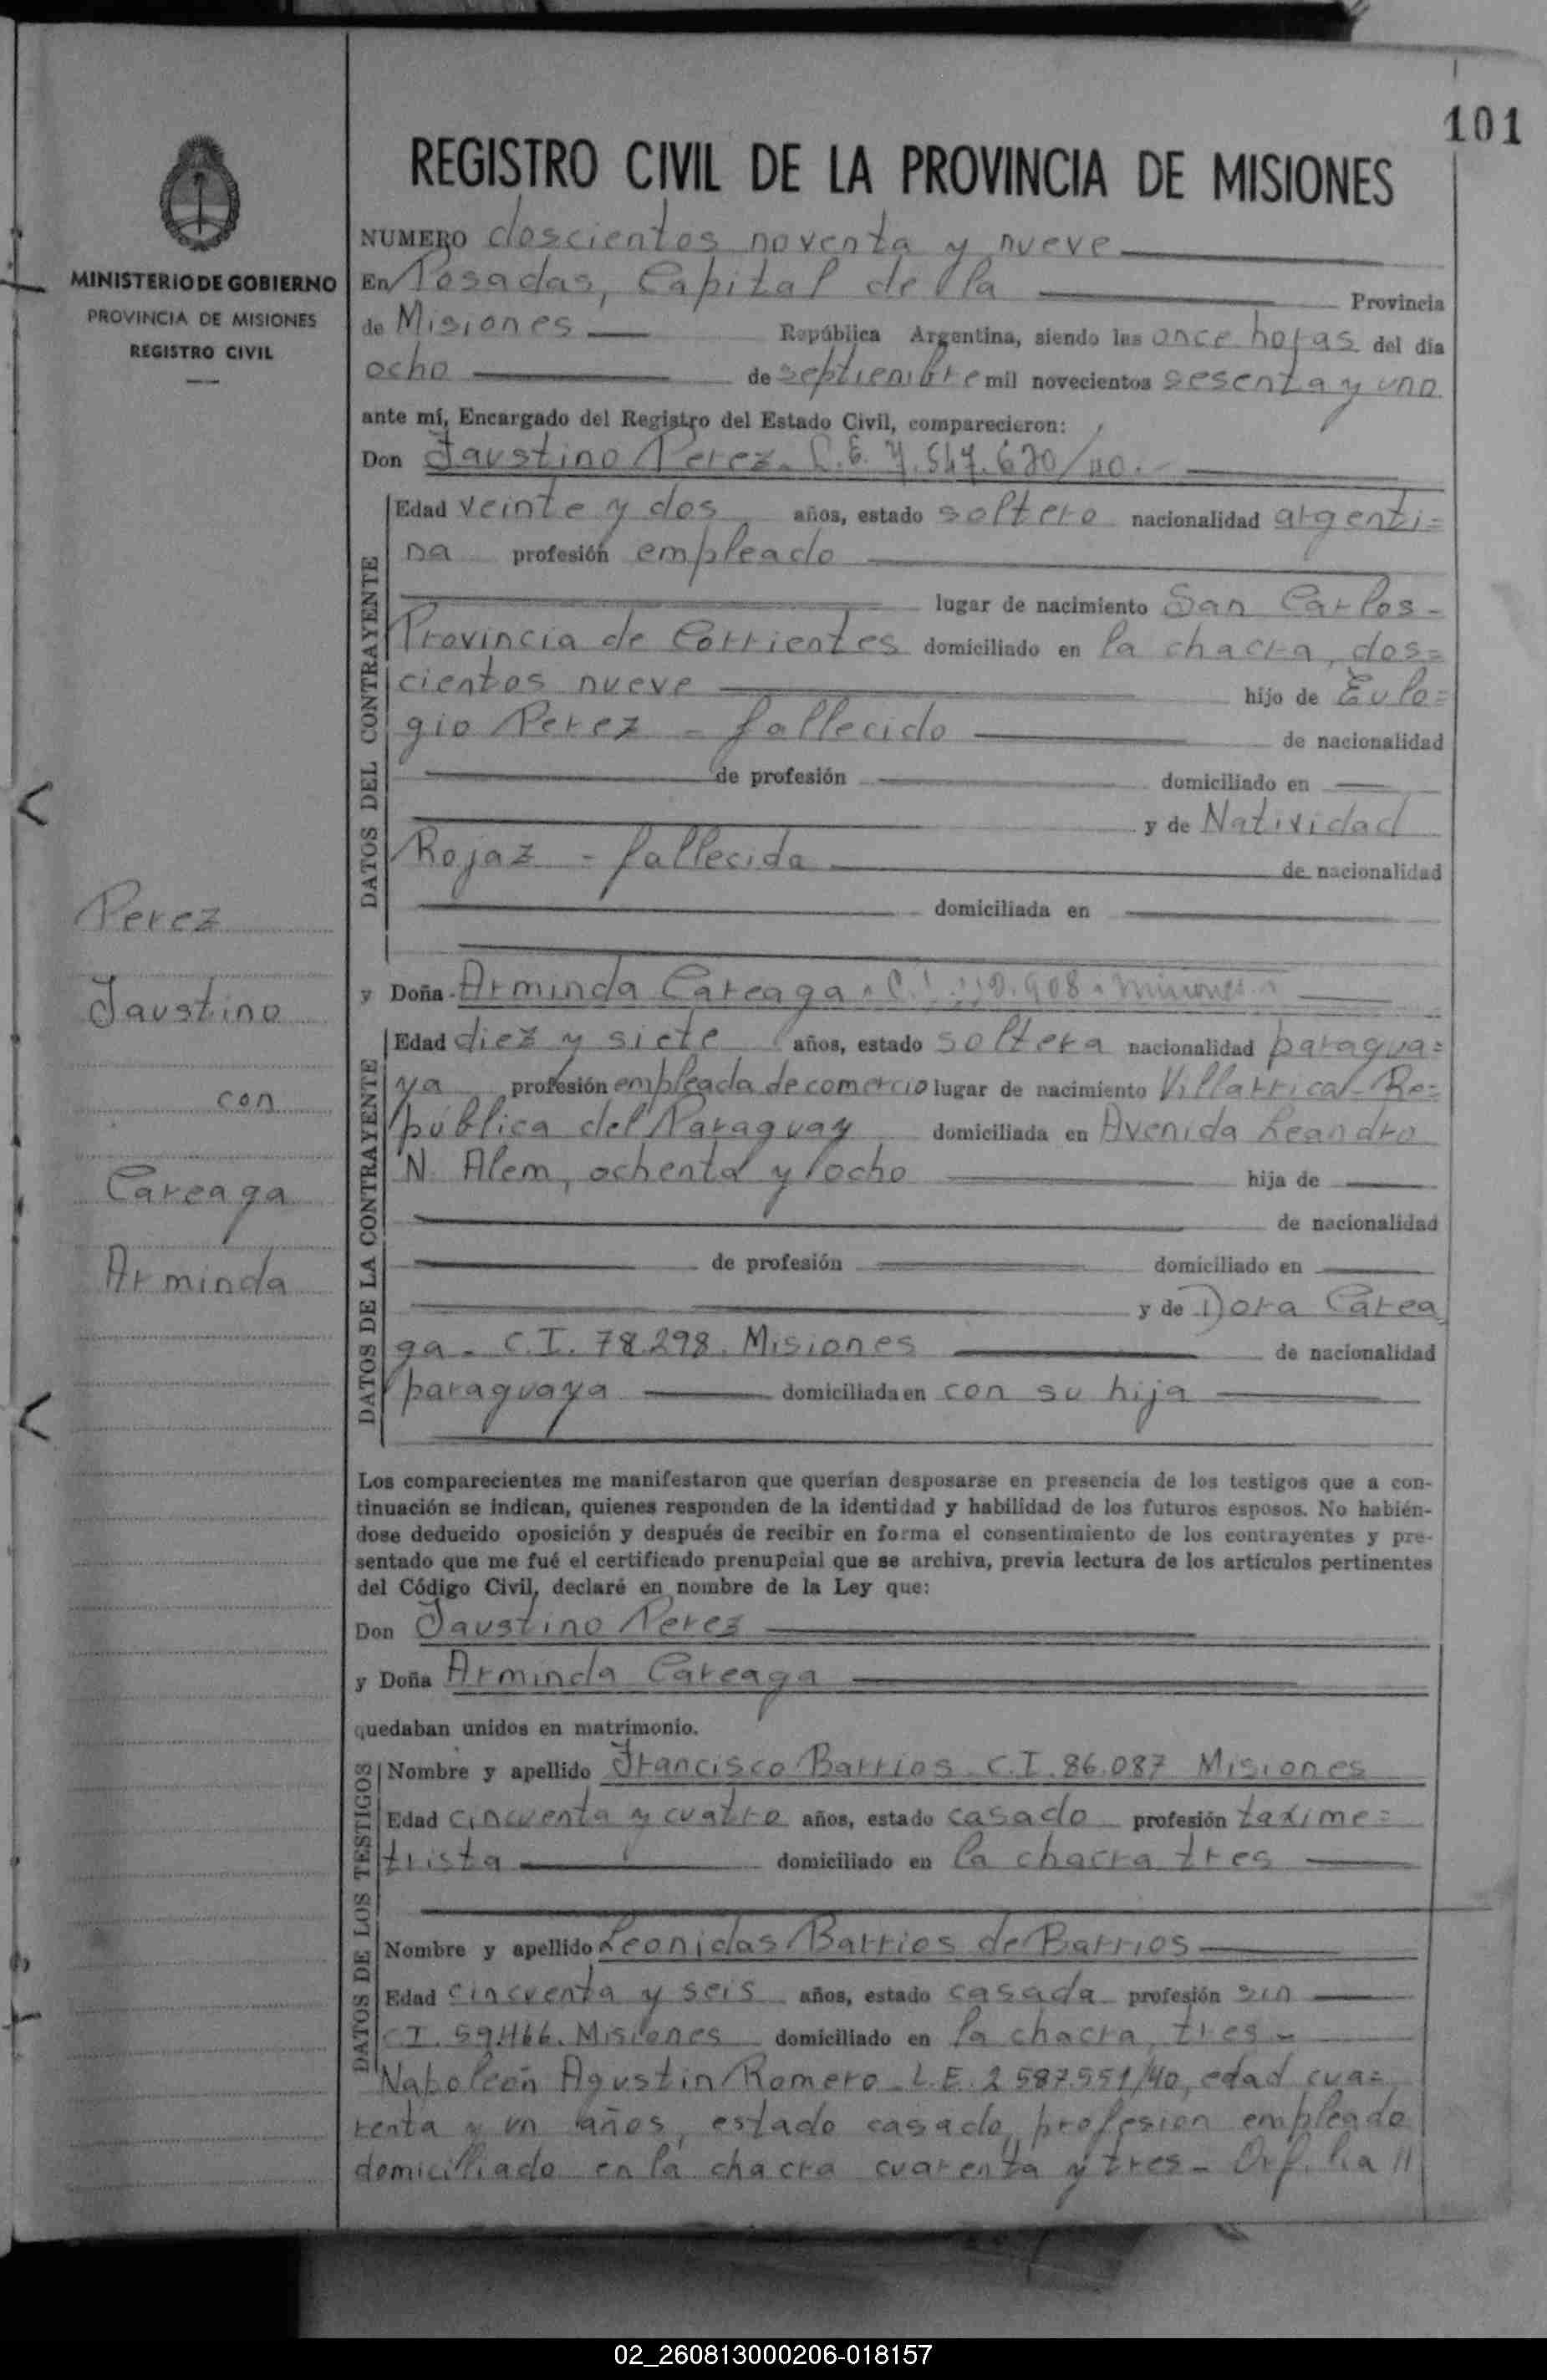 101
REGISTRO CIVIL DE LA PROVINCIA DE MISIONES
MINISTERIO DE GOBIERNO
PROVINCIA DE MISIONES
REGISTRO CIVIL
NUMERO doscientos noventa y nueve
En Posadas, Capital de la Provincia
de Misiones República Argentina, siendo las once horas del día
ocho de septiembre mil novecientos sesenta y uno
ante mí, Encargado del Registro del Estado Civil, comparecieron:
Don Faustino Perez. L.E.
DATOS DEL CONTRAYENTE
Edad veinte y dos años, estado soltero nacionalidad argenti=
na profesión empleado
lugar de nacimiento San Carlos-
Provincia de Corrientes domiciliado en la chacra, dos=
cientos nueve hijo de Eulo=
gio Perez - fallecido de nacionalidad
de profesión domiciliado en
y de Natividad
Rojaz - fallecida de nacionalidad
domiciliada en
Perez
Faustino
con
Careaga
Arminda
y Doña Arminda Careaga - C.I. Misiones
DATOS DE LA CONTRAYENTE
Edad diez y siete años, estado soltera nacionalidad paragua=
ya profesión empleada de comercio lugar de nacimiento Villarrica-Re=
pública del Paraguay domiciliada en Avenida Leandro
N. Alem, ochenta y ocho hija de
de nacionalidad
de profesión domiciliado en
y de Dora Carea
ga - C.I. 78.298. Misiones de nacionalidad
paraguaya domiciliada en con su hija
Los comparecientes me manifestaron que querían desposarse en presencia de los testigos que a con-
tinuación se indican, quienes responden de la identidad y habilidad de los futuros esposos. No habién-
dose deducido oposición y después de recibir en forma el consentimiento de los contrayentes y pre-
sentado que me fué el certificado prenupcial que se archiva, previa lectura de los artículos pertinentes
del Código Civil, declaré en nombre de la Ley que:
Don Faustino Perez
y Doña Arminda Careaga
quedaban unidos en matrimonio.
DATOS DE LOS TESTIGOS
Nombre y apellido Francisco Barrios C.I. 86.087 Misiones
Edad cincuenta y cuatro años, estado casado profesión taxime=
trista domiciliado en la chacra tres
Nombre y apellido Leonidas Barrios de Barrios
Edad cincuenta y seis años, estado casada profesión sin
C.I. Misiones domiciliado en la chacra tres -
Napoleón Agustin Romero - L.E. 2.587.551/40, edad cua=
renta y un años, estado casado, profesion empleado
domiciliado en la chacra cuarenta y tres - Orfilia //
02_260813000206-018157